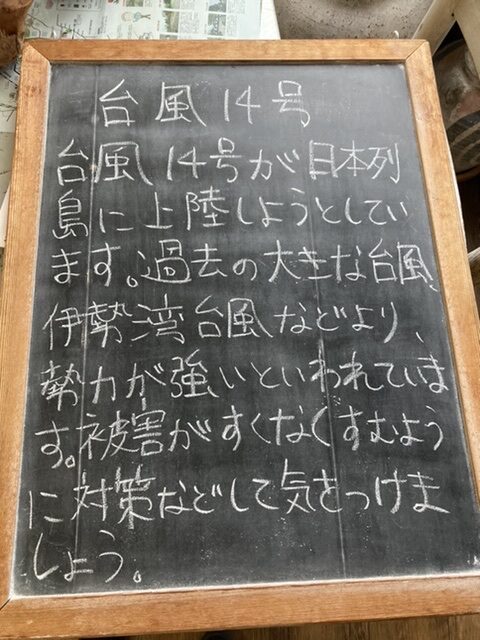 台風14号
台風14号が日本列
島に上陸しようとしてい
ます。過去の大きな台風、
伊勢湾台風などより、
勢力が強いといわれていま
す。被害がすくなくすむよう
に対策などして気をつけま
しょう。